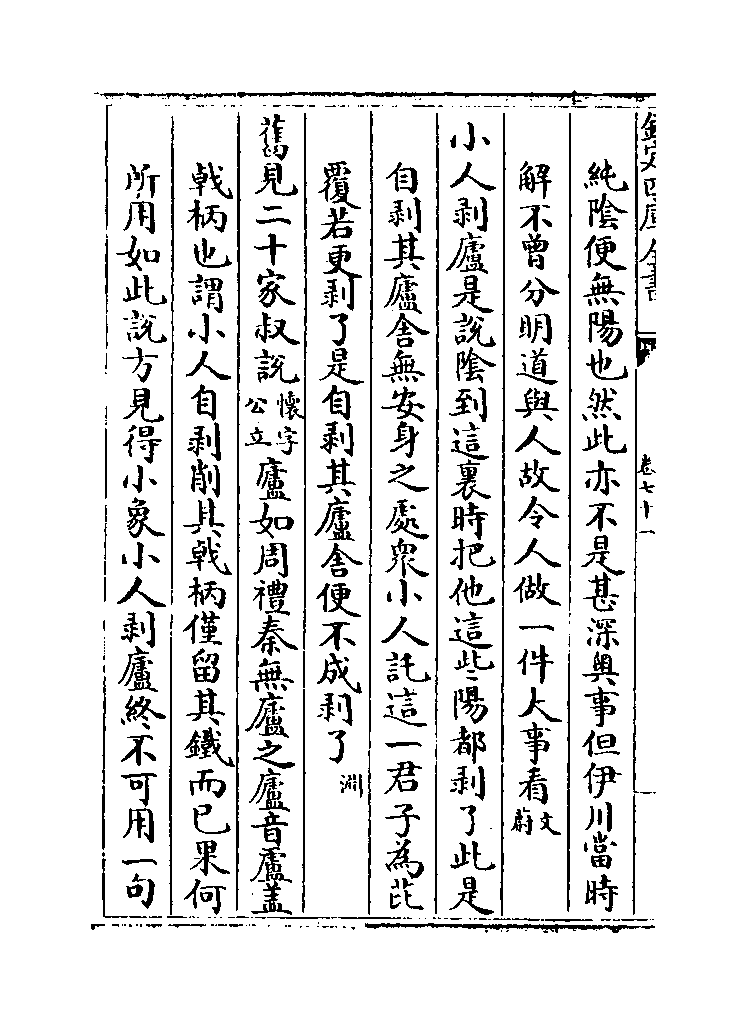 欽定四庫全書
卷七十一
純陰便無陽也然此亦不是甚深奥事但伊川當時
解不曾分明道與人故令人做一件大事看文蔚
小人剥廬是説陰到這裏時把他這些陽都剥了此是
自剥其廬舍無安身之處衆小人託這一君子為芘
覆若更剥了是自剥其廬舍便不成剥了淵
舊見二十家叔説懷字公立廬如周禮秦無廬之廬音盧盖
戟柄也謂小人自剥削其戟柄僅留其鐵而已果何
所用如此説方見得小象小人剥廬終不可用一句